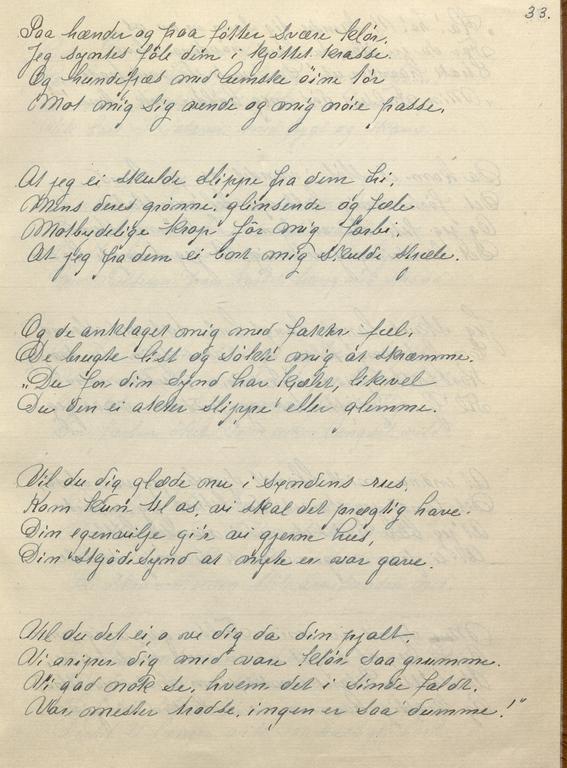 33.
Paa hænder og paa føtter svære klör,
Jeg syntes föle dem i kjöttet krasse.
Og hundefjæs med lumske öine tör
Mot mig sig vende og mig nöie passe,
At jeg ei skulde slippe fra dem fri,
Mens deres grönne, glinsende og fæle
Motbydelige krop för mig forbi
At jeg fra dem ei bort mig skulde stjæle.
Og de anklaget mig med fakter fæl,
De brugte list og sökte mig at skræmme.
"Du for din synd har kjælet, likevel
Du den ei akter slippe eller glemme.
Vil du dig glæde nu i syndens rus,
Kom kun til os, vi skal det prægtig have.
Din egenvilje gi'r vi gjerne hus,
Din skjödesynd at nyte er vor gave.
Vil du det ei, o ve dig da din pjalt,
Vi griper dig med vore klör saa grumme.
Vi gad nok se, hvem det i sinde faldt,
Vor mester trodse, ingen er saa dumme!"